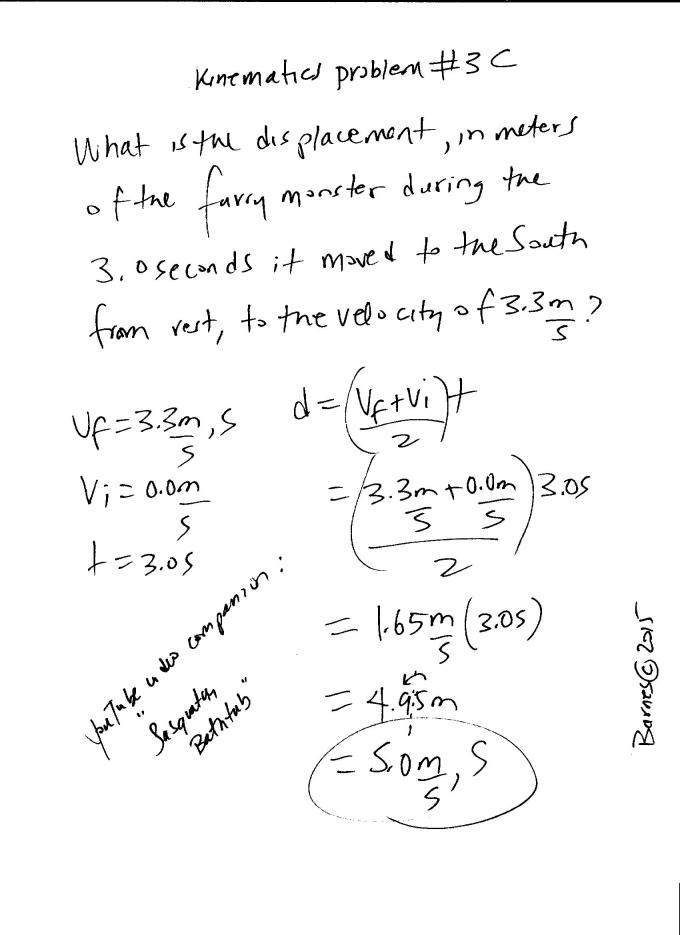 Kinematics problem #3C
What is the displacement, in meters
of the furry monster during the
3.0 seconds it moved to the South
from rest, to the velocity of 3.3 m/s?
Vf = 3.3 m/s, S
Vi = 0.0 m/s
t = 3.0s
d = ((Vf + Vi)/2) t
= ((3.3 m/s + 0.0 m/s)/2) 3.0s
= 1.65 m/s (3.0s)
= 4.95m
= 5.0 m/s, S
YouTube video companion:
"Sasquatch
Bathtub"
Barnes © 2015